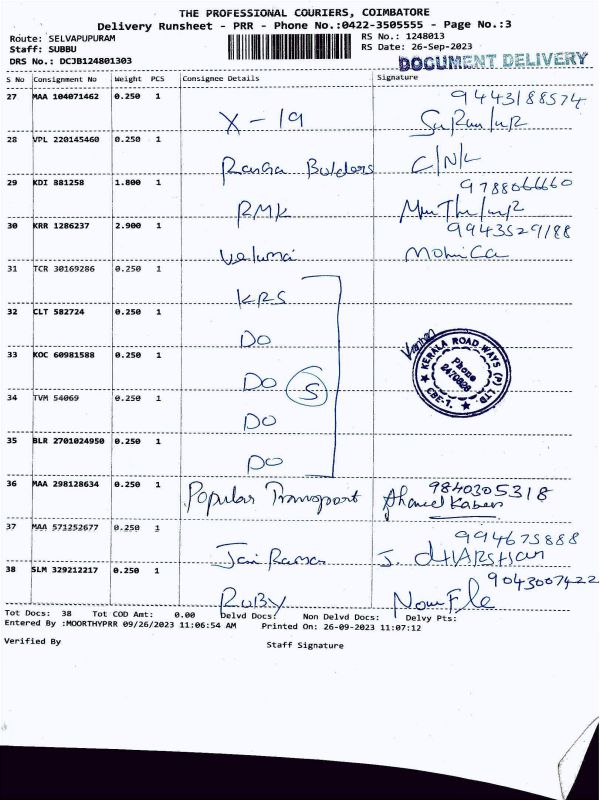 THE PROFESSIONAL COURIERS, COIMBATORE
Delivery Runsheet - PRR - Phone No.:0422-3505555 - Page No.:3
Route: SELVAPUPURAM RS No.: 1248013
Staff: SUBBU RS Date: 26-Sep-2023
DRS No.: DCJB124801303 DOCUMENT DELIVERY
S No Consignment No Weight PCS Consignee Details Signature
27 MAA 104071462 0.250 1 9443188574
X-19
28 VPL 220145460 0.250 1
Ranga Bulders C/N/L
29 KDI 881258 1.800 1 9788066660
RMK
30 KRR 1286237 2.900 1 9943529188
Velumai Mohica
31 TCR 30169286 0.250 1
KRS
32 CLT 582724 0.250 1
DO
33 KOC 60981588 0.250 1
DO S
34 TVM 54069 0.250 1
DO
35 BLR 2701024950 0.250 1
DO
KERALA ROAD WAYS (P) LTD.
Phone
2470828
CBE-1.
36 MAA 298128634 0.250 1 9840305318
Popular Transport Ahamed Kaber
37 MAA 571252677 0.250 1 994675888
Jai Ram J. DHARSHan
38 SLM 329212217 0.250 1 9043007422
RuBY
Tot Docs: 38 Tot COD Amt: 0.00 Delvd Docs: Non Delvd Docs: Delvy Pts:
Entered By :MOORTHYPRR 09/26/2023 11:06:54 AM Printed On: 26-09-2023 11:07:12
Verified By Staff Signature